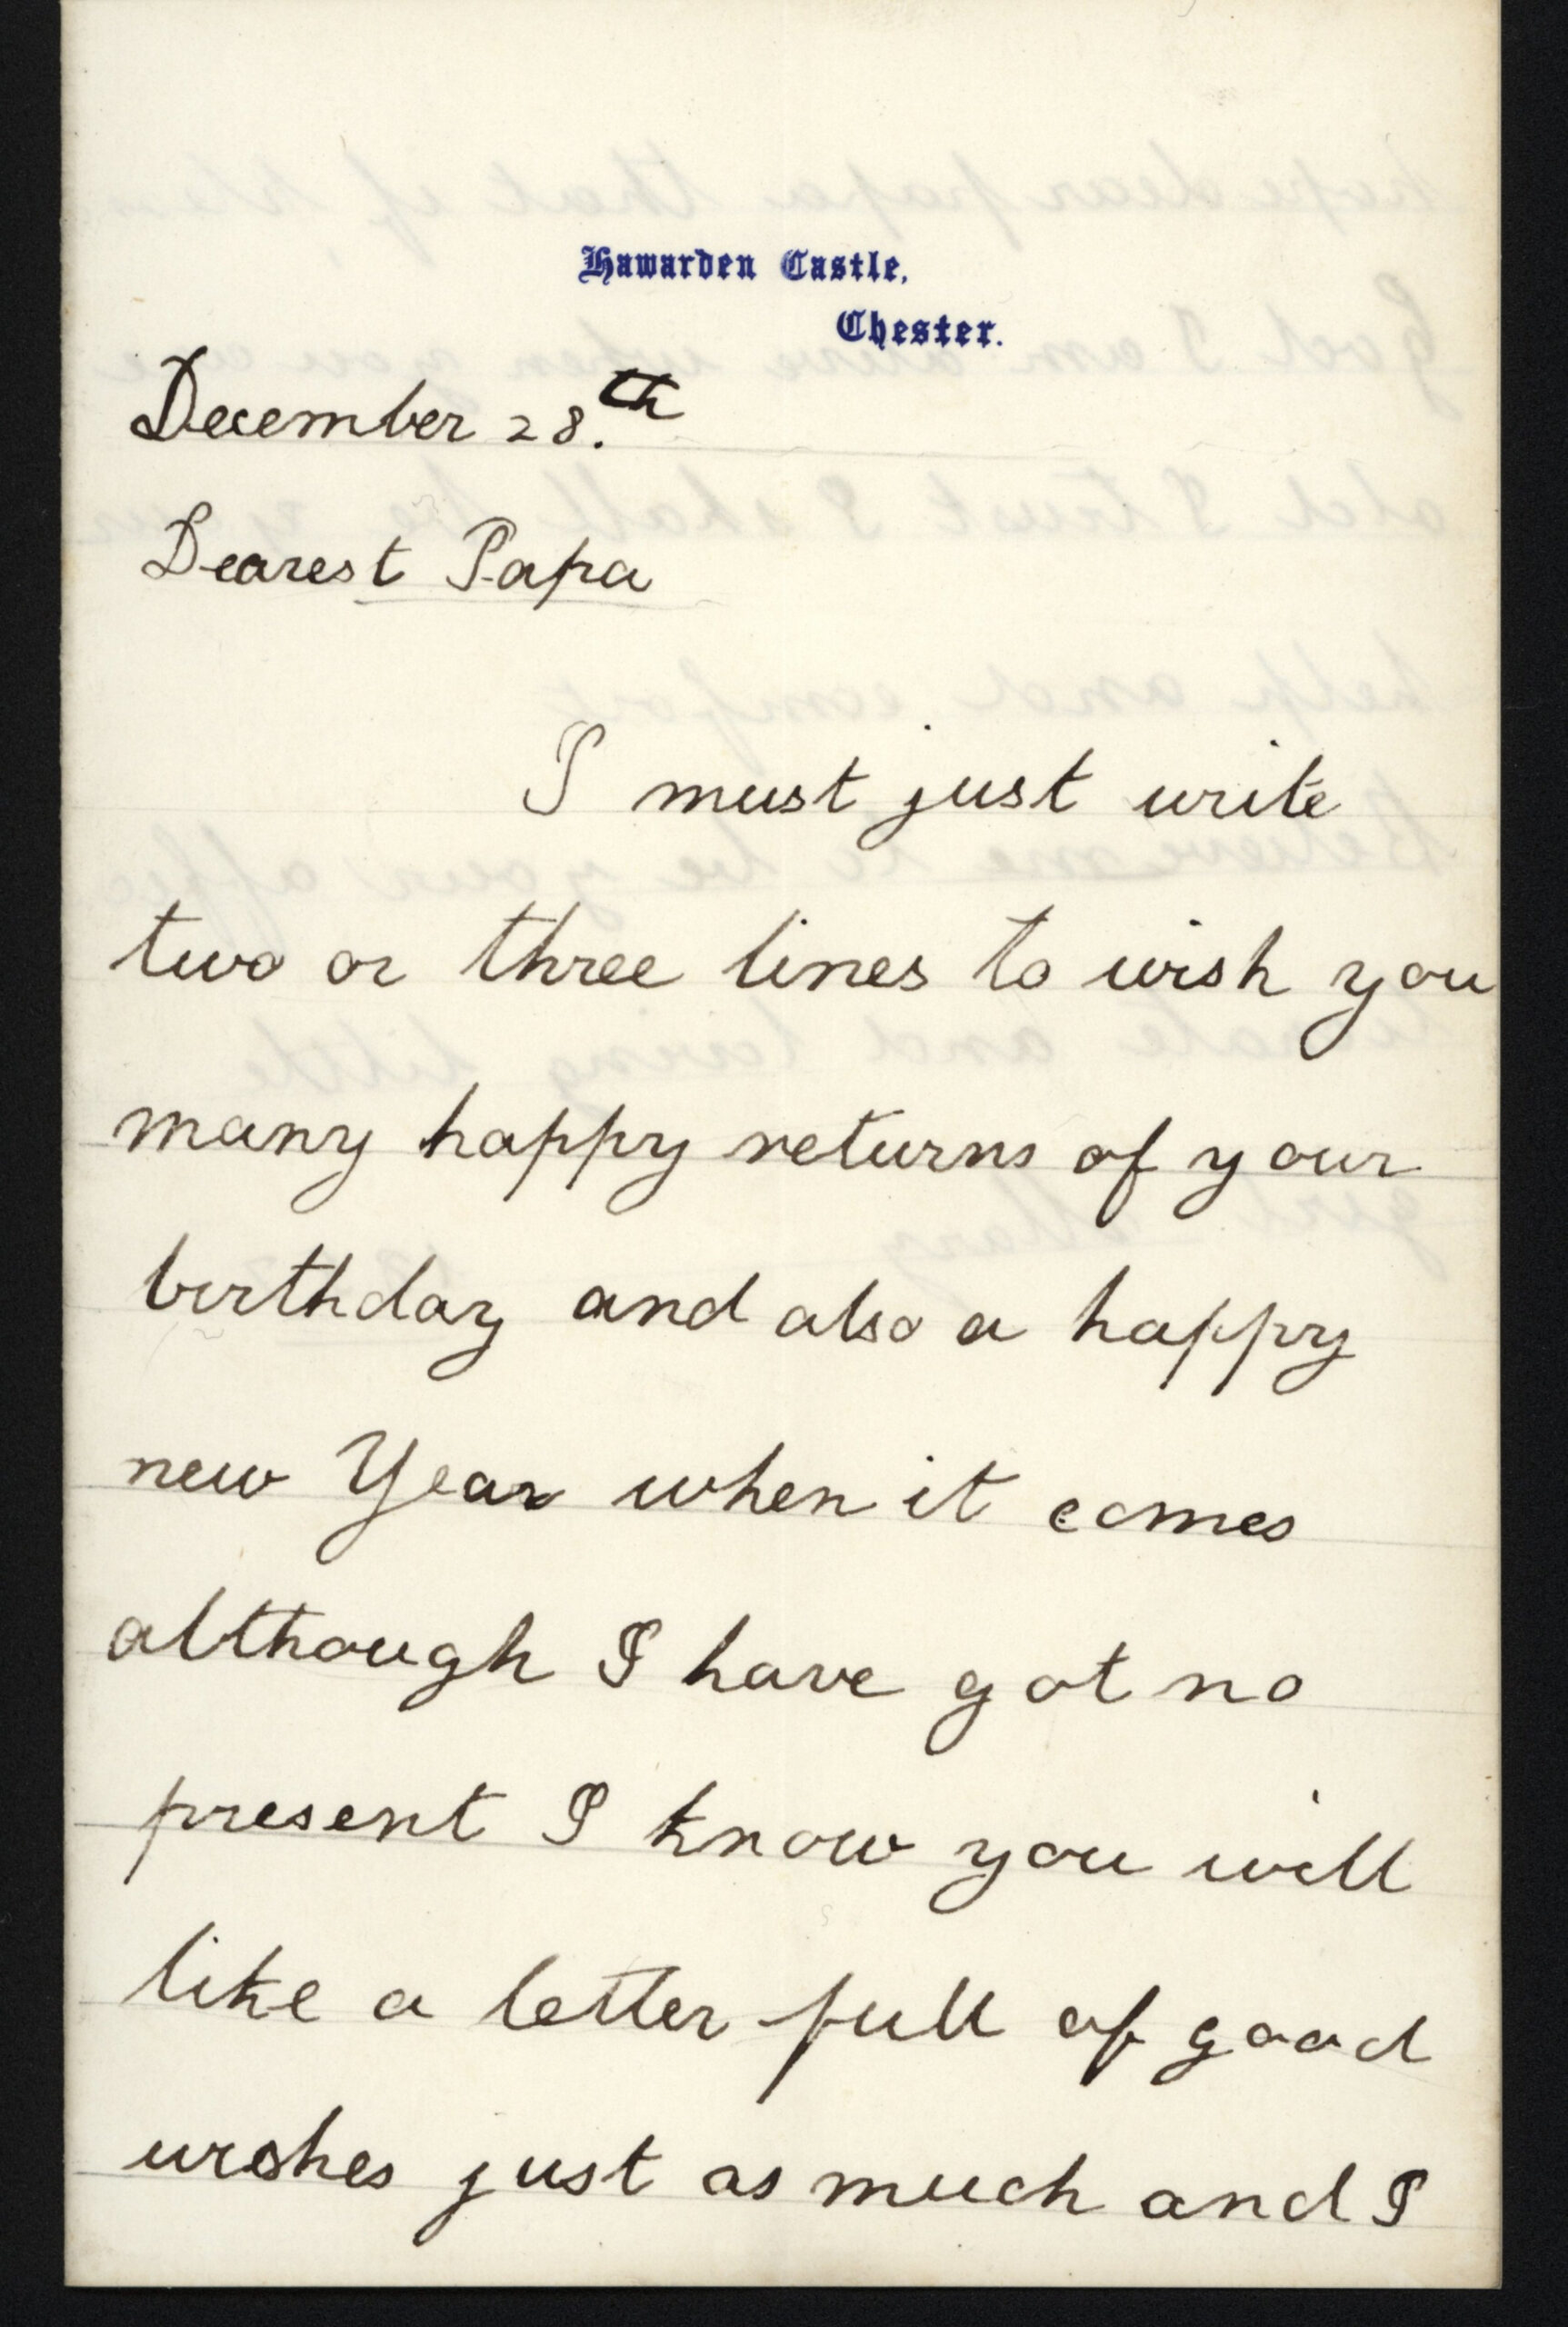 Hawarden Castle,
Chester.
December 28.th
Dearest Papa
I must just write
two or three lines to wish you
many happy returns of your
birthday and also a happy
new Year when it comes
although I have got no
present I know you will
like a letter full of good
wishes just as much and I